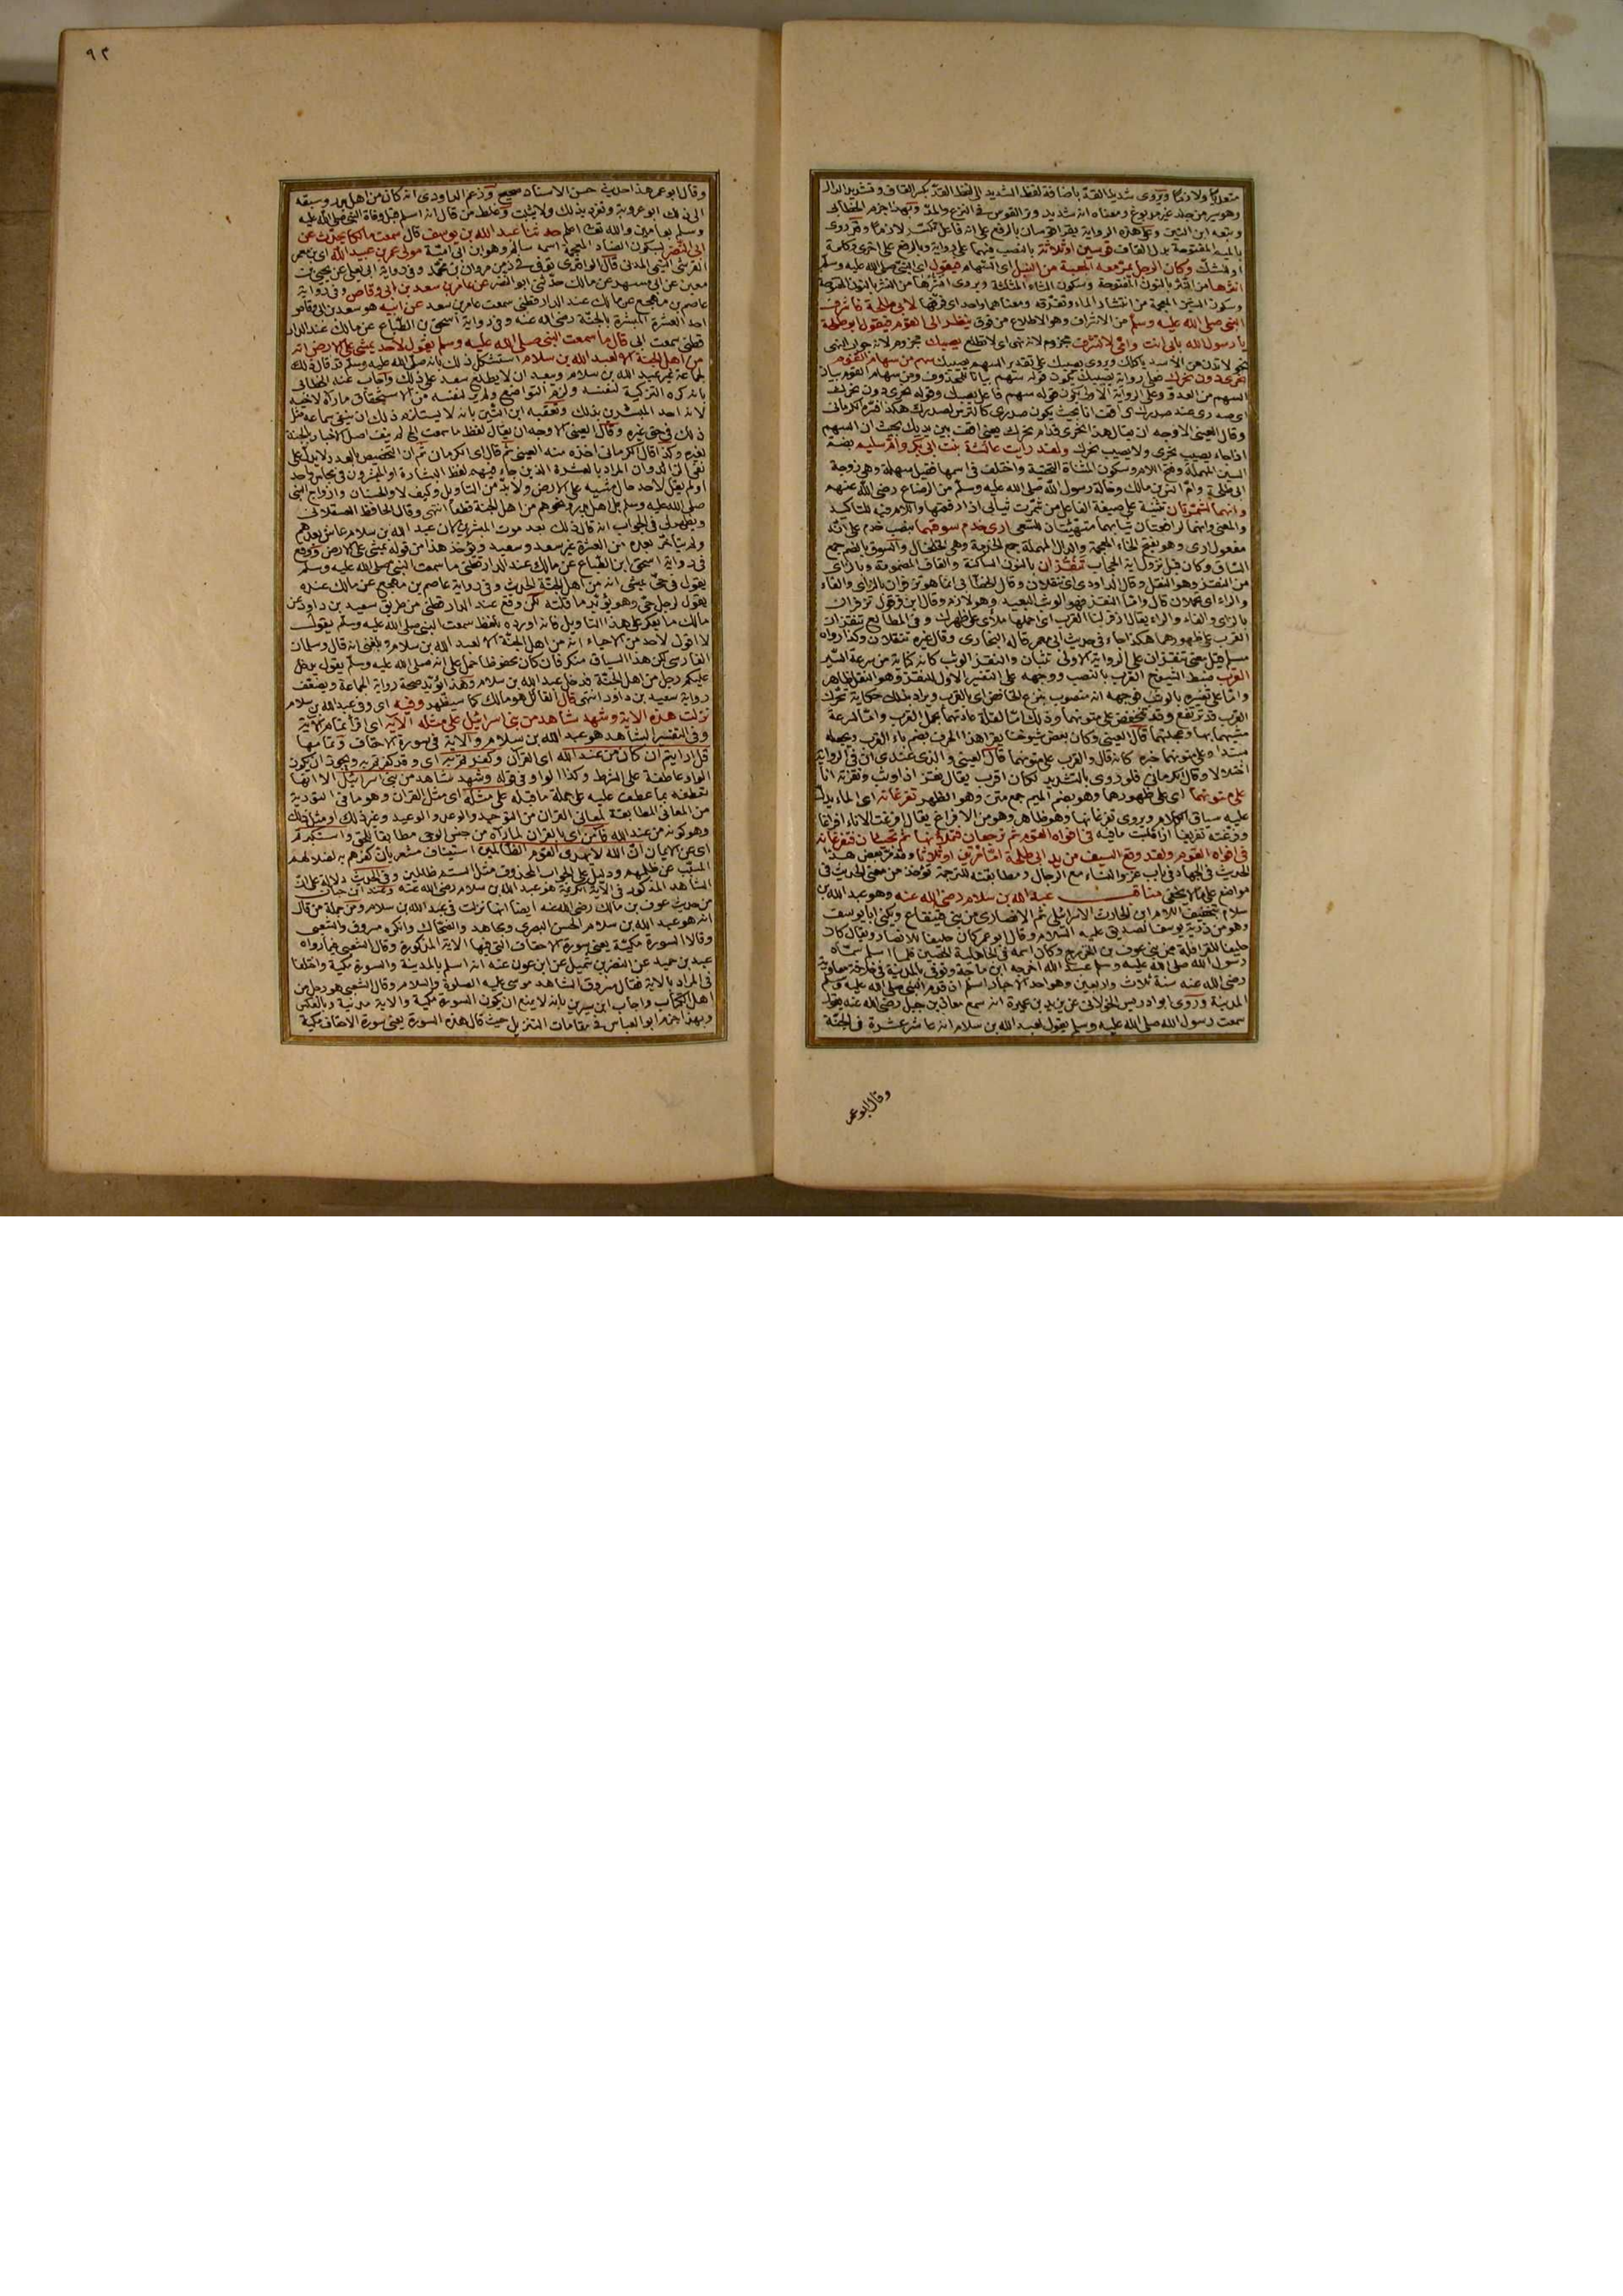 متعديا ولازما ويروى شديد القدّ باضافة لفظ الشديد الى لفظ القدّ بكسر القاف وتشديد الدال
وهو سير من جلد غير مدبوغ ومعناه انه شديد وتر القوس في النزع والمدّ وبهذا جزم الخطابي
وتبعه ابن التين وعلى هذه الرواية يقرأ قوسان بالرفع على انه فاعل تكسّر لازما وقد روى
بالميم المفتوحة بدل القاف قوسين او ثلاثة بالنصب فيهما على رواية وبالرفع على اخرى وكلمة
او للشك وكان الرجل يمر معه الجعبة من النبل اى السهام فيقول اى النبى صلى الله عليه وسلم
انثرها من النثر بالنون المفتوحة وسكون الثاء المثلثة ويروى انشرها من النشر بالنون المفتوحة
وسكون الشين المعجمة من انتشار الماء وتفرّقه ومعناهما واحد اى فرّقها لابى طلحة فاشرف
النبى صلى الله عليه وسلم من الاشراف وهو الاطلاع من فوق ينظر الى القوم فيقول ابو طلحة
يا رسول الله بابى انت وامى لا تشرف مجزوم لانه نهى اى لا تطلع يصيبك مجزوم لانه جواب النهى
نحو لا تدن من الأسد يأكلك ويروى يصيبك على تقدير السهم يصيبك سهم من سهام القوم
نحرى دون نحرك فعلى رواية يصيبك يكون قوله سهم بيانا للمحذوف ومن سهام القوم بيان
السهم من العدوّ وعلى الرواية الاولى يكون قوله سهم فاعل يصبك وقوله نحرى دون نحرك
اى صدرى عند صدرك اى اقف انا بحيث يكون صدرى كالترس لصدرك هكذا فسّره الكرمانى
وقال العينى الاوجه ان يقال هذا نحرى قدام نحرك يعنى اقف بين يديك بحيث ان السهم
اذا جاء يصيب نحرى ولا يصيب نحرك ولقد رأيت عائشة بنت ابى بكر وام سليم بضمّ
السين المهملة وفتح اللام وسكون المثناة التحتية واختلف فى اسمها فقيل سهلة وهى زوجة
ابى طلحة وامّ انس بن مالك وخالة رسول الله صلى الله عليه وسلم من الرضاع رضى الله عنهم
وانهما لمشمّرتان تثنية على صيغة الفاعل من شمّرت ثيابى اذا رفعتها واللام فيه للتأكيد
والمعنى وانهما لرافعتان ثيابهما متهيئتان للسعى ارى خدم سوقهما بنصب خدم على انّه
مفعول ارى وهو بفتح الخاء المعجمة والدال المهملة جمع الخدمة وهى الخلخال والسوق بالضم جمع
الساق وكان قبل نزول اية الحجاب تنقزان بالنون الساكنة والقاف المضمومة وبالزاى
من النقز وهو النقل وقال الداودى اى تنقلان وقال الخطّابى انما هو تزفران بالزاى والفاء
والراء اى تحملان قال وامّا النقز فهو الوثب البعيد وهو لازم وقال ابن قرقول تزفران
بالزاى والفاء والراء يقال ازفر لنا القرب اى احملها ملأى على ظهرك وفى المطالع تنقزان
القرب على ظهورهما هكذا جاء فى حديث ابى معمر قاله البخارى وقال غيره تنقلان وكذا رواه
مسلم قيل معنى تنقزان على الرواية الاولى تثبان والنقز الوثب كانه كناية من سرعة السّير
القرب ضبط الشيوخ القرب بالنصب ووجهه على التفسير الاول للنقز وهو النقل ظاهر
وامّا على تفسيره بالوثب فوجهه انه منصوب بنزع الخافض اى بالقرب ويراد بذلك حكاية تحرّك
القرب قد ترتفع وقد تنخفض على متونهما وذلك امّا لقلّة عادتهما بحمل القرب وامّا لسرعة
مشيهما بها وعجلتهما قال العينى وكان بعض شيوخنا يقرأ هذا الحرف بضم باء القرب ويجعله
مبتدأ وعلى متونهما خبره كانه قال والقرب على متونهما قال العينى والذى عندى ان فى الرواية
اختلالا وقال الكرمانى فلو روى بالتشديد لكان اقرب يقال نقز اذا وثب ونقزته انا
على متونهما اى على ظهورهما وهو بضم الميم جمع متن وهو الظهر تفرغانه اى الماء يدل
عليه سياق الكلام ويروى تفرغانها وهو ظاهر وهو من الافراغ يقال افرغت الاناء افراغا
وفرغته تفريغا اذا قلبت ما فيه فى افواه القوم ثم ترجعان فتملآنها ثم تجيئان فتفرغانه
فى افواه القوم ولقد وقع السيف من يد ابى طلحة امّا مرّتين او ثلاثا وقد مرّ بعض هذا
الحديث فى الجهاد فى باب غزو النساء مع الرجال ومطابقته للترجمة تؤخذ من معنى الحديث فى
مواضع على ما لا يخفى مناقب عبد الله بن سلام رضى الله عنه وهو عبد الله بن
سلام بتخفيف اللام ابن الحارث الاسرائيلى ثم الانصارى من بنى قينقاع ويكنى ابا يوسف
وهو من ذرّية يوسف الصديق عليه السّلام وقال ابو عمر كان حليفا للانصار ويقال كان
حليفا للقوافلة من بنى عوف بن الخزرج وكان اسمه فى الجاهلية الحصين فلما اسلم سمّاه
رسول الله صلى الله عليه وسلم عبد الله اخرجه ابن ماجة وتوفى بالمدينة فى خلافة معاوية
رضى الله عنه سنة ثلاث واربعين وهو احد الاحبار اسلم اذ قدم النبى صلى الله عليه وسلم
المدينة وروى ابو ادريس الخولانى عن يزيد بن عميرة انه سمع معاذ بن جبل رضى الله عنه يقول
سمعت رسول الله صلى الله عليه وسلم يقول لعبد الله بن سلام انه عاشر عشرة فى الجنّة
وقال ابو عمر
٩٣
وقال ابو عمر هذا حديث حسن الاسناد صحيح وزعم الداودى انه كان من اهل بدر وسبقه
الى ذلك ابو عروبة وتفرد بذلك ولا يثبت وغلط من قال انه اسلم قبل وفاة النبى صلى الله عليه
وسلم بعامين والله تعالى اعلم حدثنا عبد الله بن يوسف قال سمعت مالكا يحدّث عن
ابى النّضر بسكون الضاد المعجمة اسمه سالم وهو ابن ابى اميّة مولى عمر بن عبيد الله اى ابن معمر
القرشى التيمى المدنى قال الواقدى توفى فى زمن مروان بن محمّد وفى رواية ابى يعلى عن يحيى بن
معين عن ابى مسهر عن مالك حدّثنى ابو النضر عن عامر بن سعد بن ابى وقاص وفى رواية
عاصم بن مهجع عن مالك عند الدارقطنى سمعت عامر بن سعد عن ابيه هو سعد بن ابى وقاص
احد العشرة المبشرة بالجنّة رضى الله عنه وفى رواية اسحق بن الطّباع عن مالك عند الدار
قطنى سمعت ابى قال ما سمعت النبى صلى الله عليه وسلم يقول لأحد يمشى على الارض انه
من اهل الجنة الا لعبد الله بن سلام استشكل ذلك بانه صلى الله عليه وسلم قد قال ذلك
لجماعة غير عبد الله بن سلام وبعيد ان لا يطلع سعد على ذلك واجاب عنه الخطابى
بانه كره التزكية لنفسه ولزم التواضع ولم ير لنفسه من الاستحقاق ما رآه لاخيه
لانه احد المبشرين بذلك وتعقبه ابن التّين بانه لا يستلزم ذلك ان ينفى سماعه مثل
ذلك فى حق غيره وقال العينى الاوجه ان يقال لفظ ما سمعت اى لم ينف اصل الاخبار بالجنة
لغيره وكذا قال الكرمانى اخذه منه العينى ثم قال اى الكرمانى ثم ان التخصيص بالعدد لا يدل على
نفى الزائد وان المراد بالعشرة الذين جاء فيهم لفظ البشارة او المبشرون فى مجلس واحد
او لم يقل لأحد حال مشيه على الارض ولا بدّ من التأويل وكيف لا والحسنان وازواج النبى
صلى الله عليه وسلم بل اهل بدر ونحوهم من اهل الجنة قطعا انتهى وقال الحافظ العسقلانى
ويظهر لى فى الجواب انه قال ذلك بعد موت المبشرين لان عبد الله بن سلام عاش بعدهم
ولم يتأخر بعده من العشرة غير سعد وسعيد ويؤخذ هذا من قوله يمشى على الارض ووقع
فى رواية اسحق ابن الطّباع عن مالك عند الدارقطنى ما سمعت النبى صلى الله عليه وسلم
يقول لحىّ يمشى انه من اهل الجنّة الحديث وفى رواية عاصم بن مهجع عن مالك عنده
يقول لرجل حىّ وهو يؤيّد ما قلته لكن وقع عند الدارقطنى من طريق سعيد بن داود عن
مالك ما يعكر على هذا التأويل فانه اورده بلفظ سمعت النبى صلى الله عليه وسلم يقول
لا اقول لأحد من الاحياء انه من اهل الجنّة الا لعبد الله بن سلام وبلغنى انه قال وسلمان
الفارسى لكن هذا السياق منكر فان كان محفوظا حمل على انه صلى الله عليه وسلم يقول يدخل
عليكم رجل من اهل الجنّة فدخل عبد الله بن سلام وهذا يؤيد صحة رواية الجماعة ويضعّف
رواية سعيد بن داود انتهى قال القائل هو مالك كما سيظهر وفيه اى وفى عبد الله بن سلام
نزلت هذه الاية وشهد شاهد من بنى اسرائيل على مثله الآية اى اقرأ تمام الاية
وفى التفسير الشاهد هو عبد الله بن سلام والاية فى سورة الاحقاف وتمامها
قل ارايتم ان كان من عند الله اى القرآن وكفرتم به اى وقد كفرتم به ويجوز ان يكون
الواو عاطفة على الشرط وكذا الواو فى قوله وشهد شاهد من بنى اسرائيل الا انها
تعطفه بما عطف عليه على جملة ما قبله على مثله اى مثل القرآن وهو ما فى التورية
من المعانى المطابقة لمعانى القرآن من التوحيد والوعد والوعيد وغير ذلك او مثل ذلك
وهو كونه من عند الله فآمن اى بالقرآن لما رآه من جنس الوحى مطابقا للحق واستكبرتم
اى عن الايمان انّ الله لا يهدى القوم الظّالمين استيناف مشعر بان كفرهم به لضلالهم
المسبّب عن ظلمهم ودليل على الجواب المحذوف مثل الستم ظالمين وفى الحديث دلالة على انّ
الشاهد المذكور فى الآية الكريمة هو عبد الله بن سلام رضى الله عنه وعند ابن حبان
من حديث عوف بن مالك رضى الله عنه ايضا انها نزلت فى عبد الله بن سلام ومن جملة من قال
انه هو عبد الله بن سلام الحسن البصرى ومجاهد والضحّاك وانكره مسروق والشعبى
وقالا السورة مكيّة يعنى سورة الاحقاف التى فيها الاية المذكورة وقال الشعبى فيما رواه
عبد بن حميد عن النضر بن شميل عن ابن عون عنه انه اسلم بالمدينة والسورة مكية واختلفا
فى المراد بالاية فقال مسروق الشاهد موسى عليه الصلوة والسلام وقال الشعبى هو رجل من
اهل الكتاب واجاب ابن سيرين بانه لا يمنع ان يكون السورة مكية والاية مدنية وبالعكس
وبهذا جزم ابو العباس فى مقامات التنزيل حيث قال هذه السورة يعنى سورة الاحقاف مكية